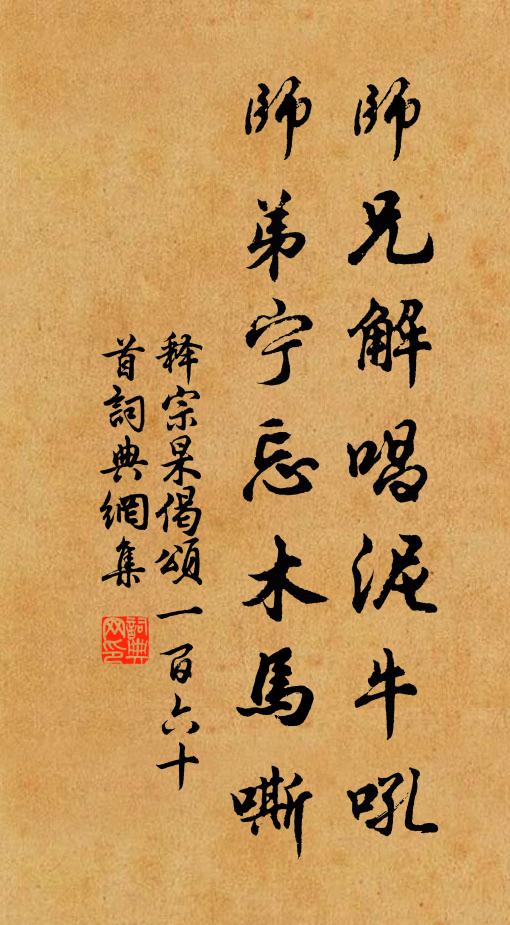 師兄解唱泥牛吼
師弟宁忘木馬嘶
释宗杲偈頌一百六十
首詞典網集
詞典网印